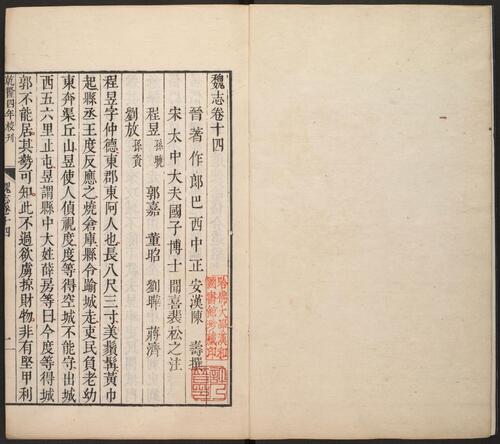 魏志卷十四
晉著作郎巴西中正安漢陳 壽撰
宋太中大夫國子博士聞喜裴松之注
程昱孫曉 郭嘉 董昭 劉曄 蔣濟
劉放孫資
程昱字仲德東郡東阿人也長八尺三寸美鬚髯黃巾
起縣丞王度反應之燒倉庫縣令踰城走吏民負老幼
東奔渠丘山昱使人偵視度度等得空城不能守出城
西五六里止屯昱謂縣中大姓薛房等曰今度等得城
郭不能居其勢可知此不過欲虜掠財物非有堅甲利
乾隆四年校刊
魏志卷十四
一
哈佛大學漢和
圖書館珍藏印